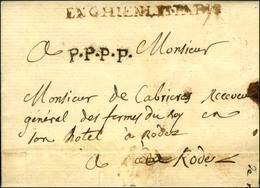 ENGHIEN LES PARIS
a P.P.P.P. Monsieur
Monsieur de Cabrieres Receveur
général des fermes du Roy en
son hôtel à Rodez
a Rodez